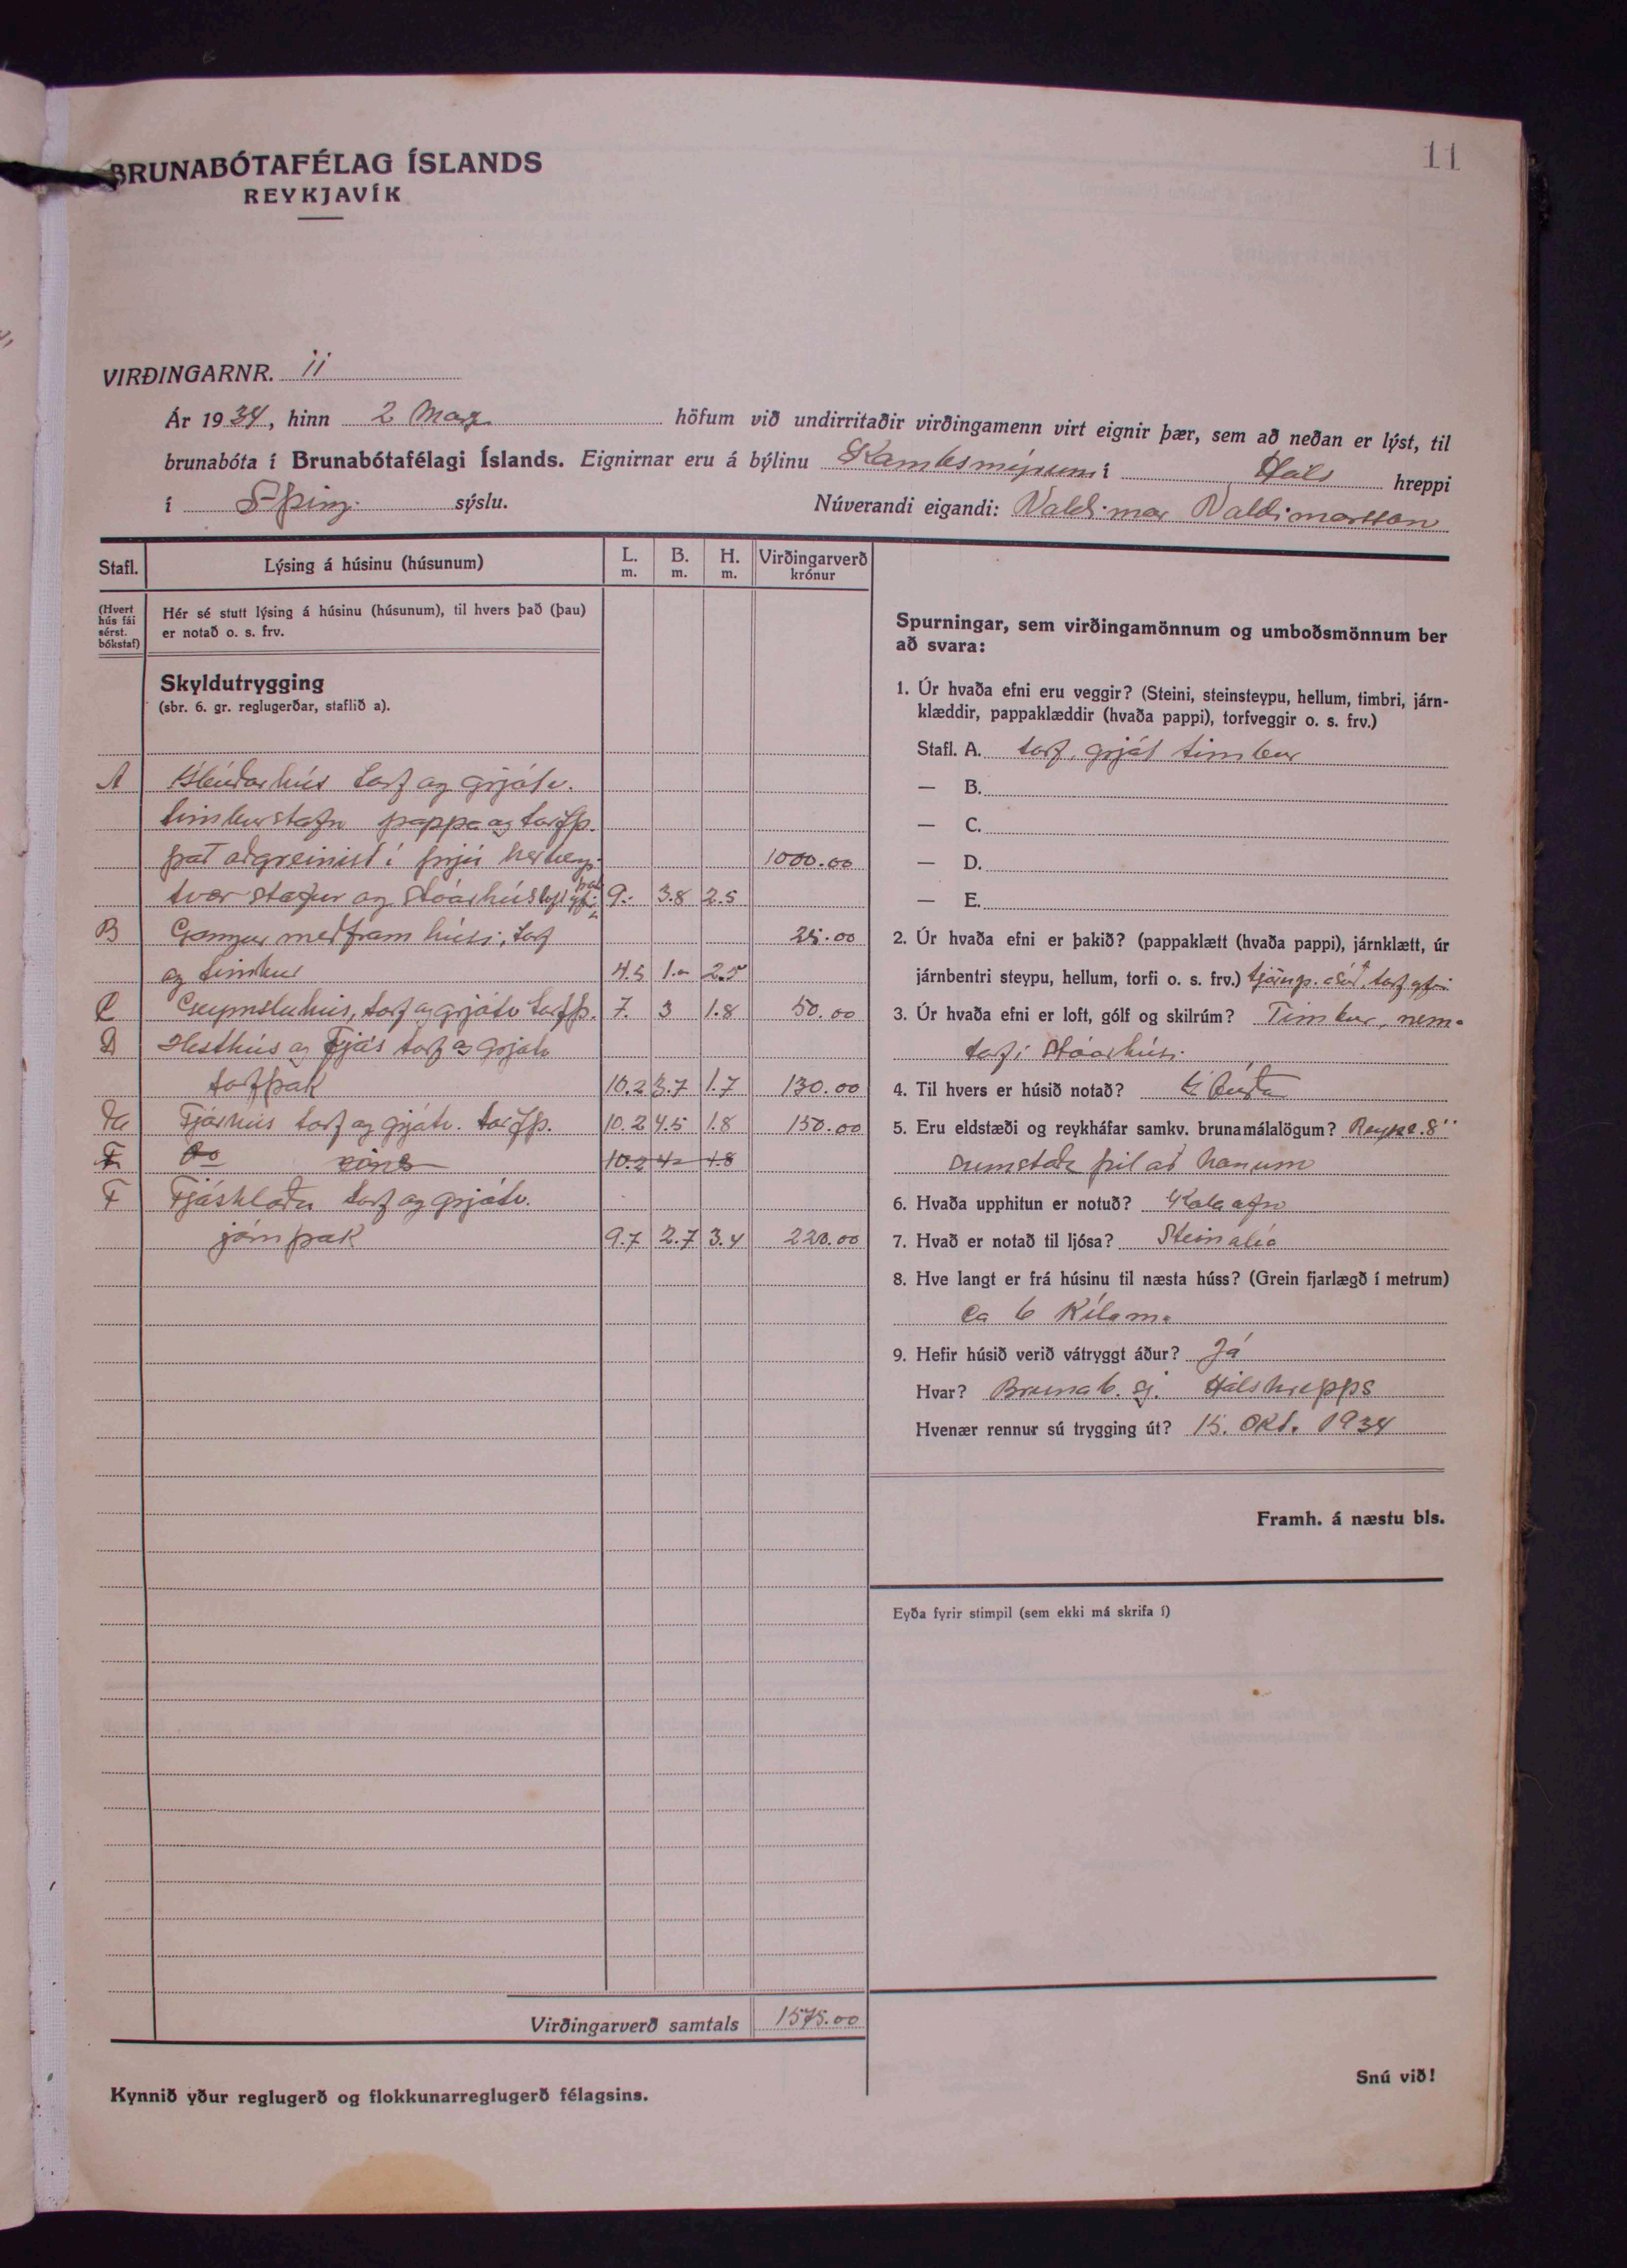 11
BRUNABÓTAFÉLAG ÍSLANDS
REYKJAVÍK
VIRÐINGARNR. 11
Ár 1934, hinn 2 Marz höfum við undirritaðir virðingamenn virt eignir þær, sem að neðan er lýst, til
brunabóta í Brunabótafélagi Íslands. Eignirnar eru á býlinu Kambsmýrum í Háls hreppi
í S-Þing. sýslu. Núverandi eigandi: Valdimar Valdimarsson
Stafl. Lýsing á húsinu (húsunum) L. m. B. m. H. m. Virðingarverð krónur
(Hvert hús fái sérst. bókstaf)
Hér sé stutt lýsing á húsinu (húsunum), til hvers það (þau)
er notað o. s. frv.
Skyldutrygging
(sbr. 6. gr. reglugerðar, staflið a).
A Íbúðarhús torf og grjótv.
timburstafn pappa og torfþ.
þat aðgreinist í þrjú herberg. 1000.00
tvær stofur og stóarhús loft yfir 9.- 3.8 2.5
B Gangur með fram húsi, torf 25.00
og timbur 4.5 1.- 2.5
C Geymsluhús, torf og grjótv torfþ. 7. 3 1.8 50.00
D Hesthús og Fjós torf og grjótv
torfþak 10.2 3.7 1.7 130.00
Fjárhús torf og grjótv. torfþ. 10.2 4.5 1.8 150.00
F Do 10.2 4- 1.8
F Fjárhlaða torf og grjótv.
járnþak 9.7 2.7 3.4 220.00
Virðingarverð samtals 1575.00
Kynnið yður reglugerð og flokkunarreglugerð félagsins.
Spurningar, sem virðingamönnum og umboðsmönnum ber
að svara:
1. Úr hvaða efni eru veggir? (Steini, steinsteypu, hellum, timbri, járn-
klæddir, pappaklæddir (hvaða pappi), torfveggir o. s. frv.)
Stafl. A. torf, grjót timbur
— B.
— C.
— D.
— E.
2. Úr hvaða efni er þakið? (pappaklætt (hvaða pappi), járnklætt, úr
járnbentri steypu, hellum, torfi o. s. frv.) tjörup. torf yfir
3. Úr hvaða efni er loft, gólf og skilrúm? Timbur, nem-
torf í stóarhúsi.
4. Til hvers er húsið notað? Íbúðar
5. Eru eldstæði og reykháfar samkv. brunamálalögum? 8"
sumstaðr þil að honum
6. Hvaða upphitun er notuð? Kola ofn
7. Hvað er notað til ljósa? Steinolía
8. Hve langt er frá húsinu til næsta húss? (Grein fjarlægð í metrum)
Ca 6 Kílom.
9. Hefir húsið verið vátryggt áður? Já
Hvar? Brunab. sj. Hálshrepps
Hvenær rennur sú trygging út? 15. Okt. 1934
Framh. á næstu bls.
Eyða fyrir stimpil (sem ekki má skrifa í)
Snú við!